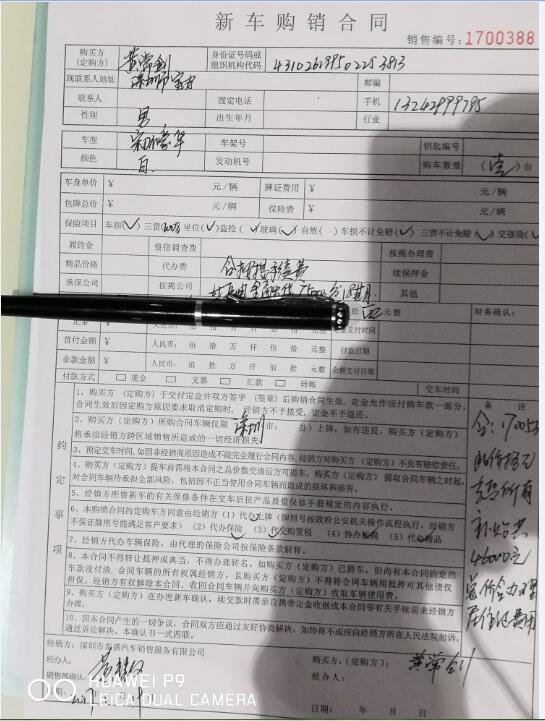 新车购销合同
销售编号:1700388
购买方(定购方) 黄常创 身份证号码或组织机构代码
现联系人地址 深圳市 邮编
联系人 固定电话 手机 13242999785
性别 男 出生年月 行业
车型 豪华 车架号 钥匙编号
颜色 白 发动机号 购车数量 (壹)台
车身单价 ¥ 元/辆 牌证费用 ¥ 元/辆
包牌总价 ¥ 元/辆 保险费 ¥ 元/辆
保险项目 车损(✓)三责 坐位(✓)盗抢(✓)玻璃(✓)自燃( )车损不计免赔(✓)三责不计免赔(✓)交强险(✓)
履约金 资信调查费 按揭办理费
精品价格 代办费 合按揭手续费 续保押金
承保公司 按揭公司 其他
定金 ¥ 人民币: 佰 拾 万 仟 佰 拾 元整 交付时间 财务确认:
首付金额 ¥ 人民币: 佰 拾 万 仟 佰 拾 元整 付款日期
余款金额 ¥ 人民币: 佰 拾 万 仟 佰 拾 元整 余额交付日期
付款方式 □ 现金 □ 支票 □ 汇款 □ 转帐 交车时间
约定事项
1、购买方(定购方)于交付定金并双方签字(签章)后购销合同生效,定金允作应付购车款一部分,
合同生效后因定购方原因要求取消定购时,经销方不予接受,定金不予退还。
2、购买方(定购方)所购合同车辆仅限 深圳 市: 县)上牌,如有违反,购买方(定购方)
将承担经销方跨区域销售所造成的一切经济损失。
3、预定交车时间,如因非经销商原因造成不能完全履行合同内容,经销方对购买方(定购方)不负有赔偿责任。
4、购买方(定购方)提车前需将本合同之总价数交清后方可提车,购买方(定购方)提取合同车辆之时起,
对合同车辆承担全部风险,包括因不正当使用合同车辆而造成的损坏和损害。
5、经销方所售新车的有关保修条件在交车后按产品质量保修手册规定的内容执行。
6、本购销合同的定购车方同意由经销方(1)代办上牌(牌照号按政府公安机关操作流程执行,经销方
不保证牌照号能满足客户要求)(2)代办保险 (3)代交购置税 (4)协办按揭 (5)代办精品
7、经销方代办车辆保险,由代理的保险公司按保险条款解释。
8、本合同不得转让抵押或典当,不得办理转名。如购买方(定购方)已提车,但尚有本合同约定的
车款没付清,合同车辆的所有权属经销方,且购买方(定购方)不得将合同车辆用抵押可其他债仅
担保。经销方有权解除本合同、收回合同车辆并向购买方(定购方)收取车辆使用费。
9、购买方(定购方)在办理新车确认、续交款时需亲自携带定金收据或本合同等有关手续前来经销方
办理。
10、因本合同产生的一切争议,合同双方应通过友好协商解决,如协商不成应向经销方所在人民法院起诉,
通过诉讼解决。本确认书一式四联。
备注
170053
所有
补贴共
46000元
经销方:深圳市东盛汽车销售服务有限公司
经办人: 购买方:(定购方): 黄常创
销售部确认: 经办人:
日期: 日期: 年 月 日
HUAWEI P9
LEICA DUAL CAMERA